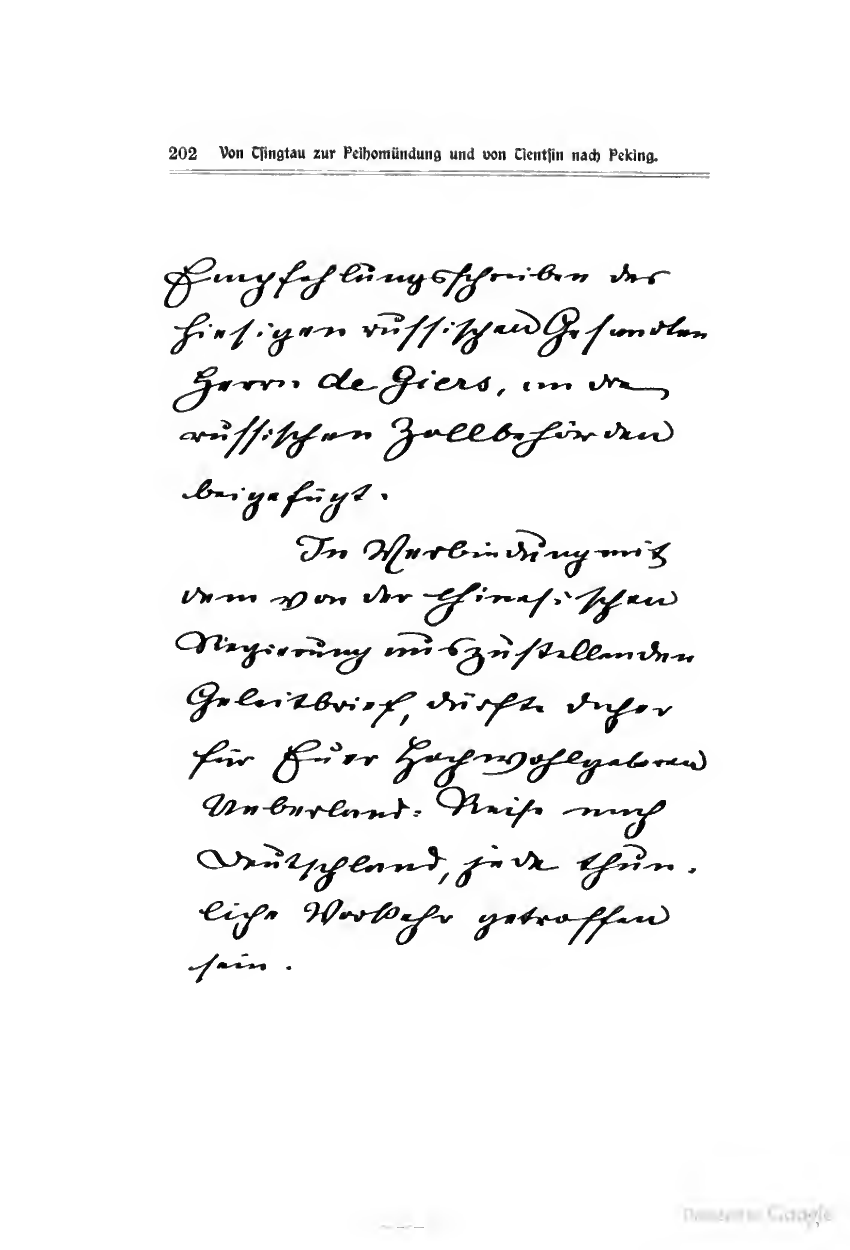 202 Von Tsingtau zur Peihomündung und von Tientsin nach Peking.
Empfehlungsschreiben des
hiesigen russischen Gesandten
Herrn de Giers, an die
russischen Zollbehörden
beigefügt.
In Verbindung mit
dem von der chinesischen
Regierung auszustellenden
Geleitbrief, dürfte daher
für Euer Hochwohlgeboren
Ueberland-Reise nach
Deutschland, jede thun-
liche Vorkehr getroffen
sein.
Digitized by Google